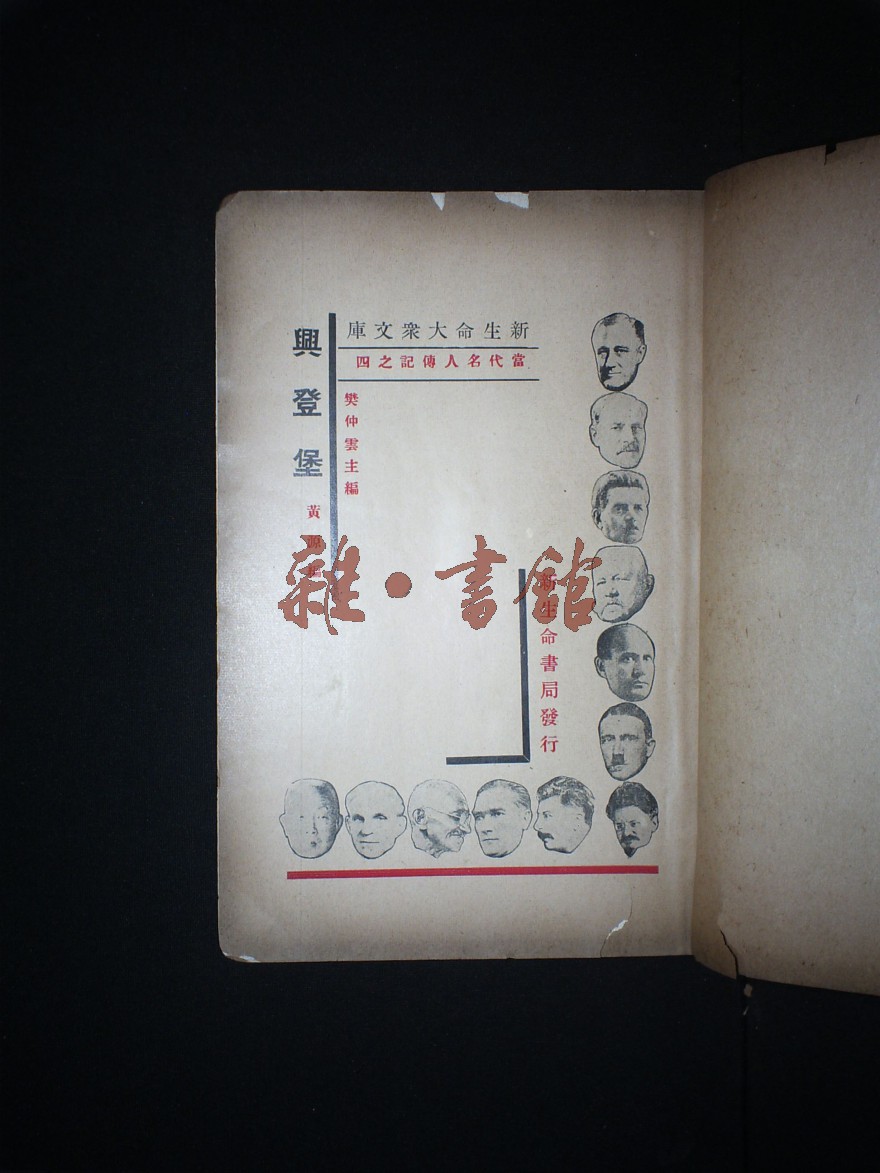 新生命大衆文庫
當代名人傳記之四
樊仲雲主編
興登堡
黃源編
新生命書局發行
雜·書館